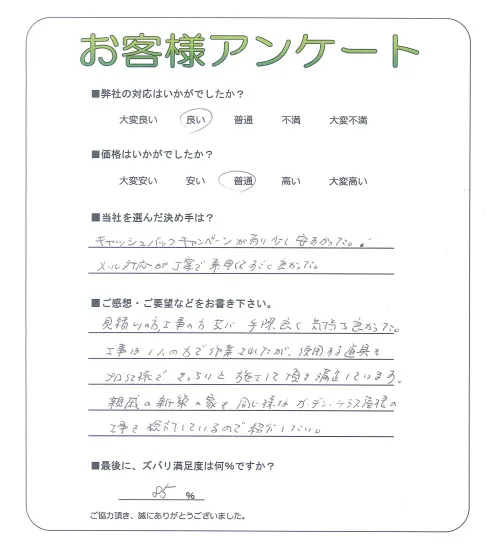 お客様アンケート
■弊社の対応はいかがでしたか？
大変良い 良い 普通 不満 大変不満
■価格はいかがでしたか？
大変安い 安い 普通 高い 大変高い
■当社を選んだ決め手は？
キャッシュバックキャンペーンが有り少し安すかった。
メール対応が丁寧で素早くすごく良かった。
■ご感想・ご要望などをお書き下さい。
見積りの方、工事の方 互に 手際良く 気持ち良かった。
工事は1人の方で作業されたが、使用する道具も
プロ仕様で きっちりと 施工して頂き満足しています。
親戚の新築の家も同じ様なガーデンテラス屋根の
工事を検討しているので紹介したい。
■最後に、ズバリ満足度は何%ですか？
85 %
ご協力頂き、誠にありがとうございました。